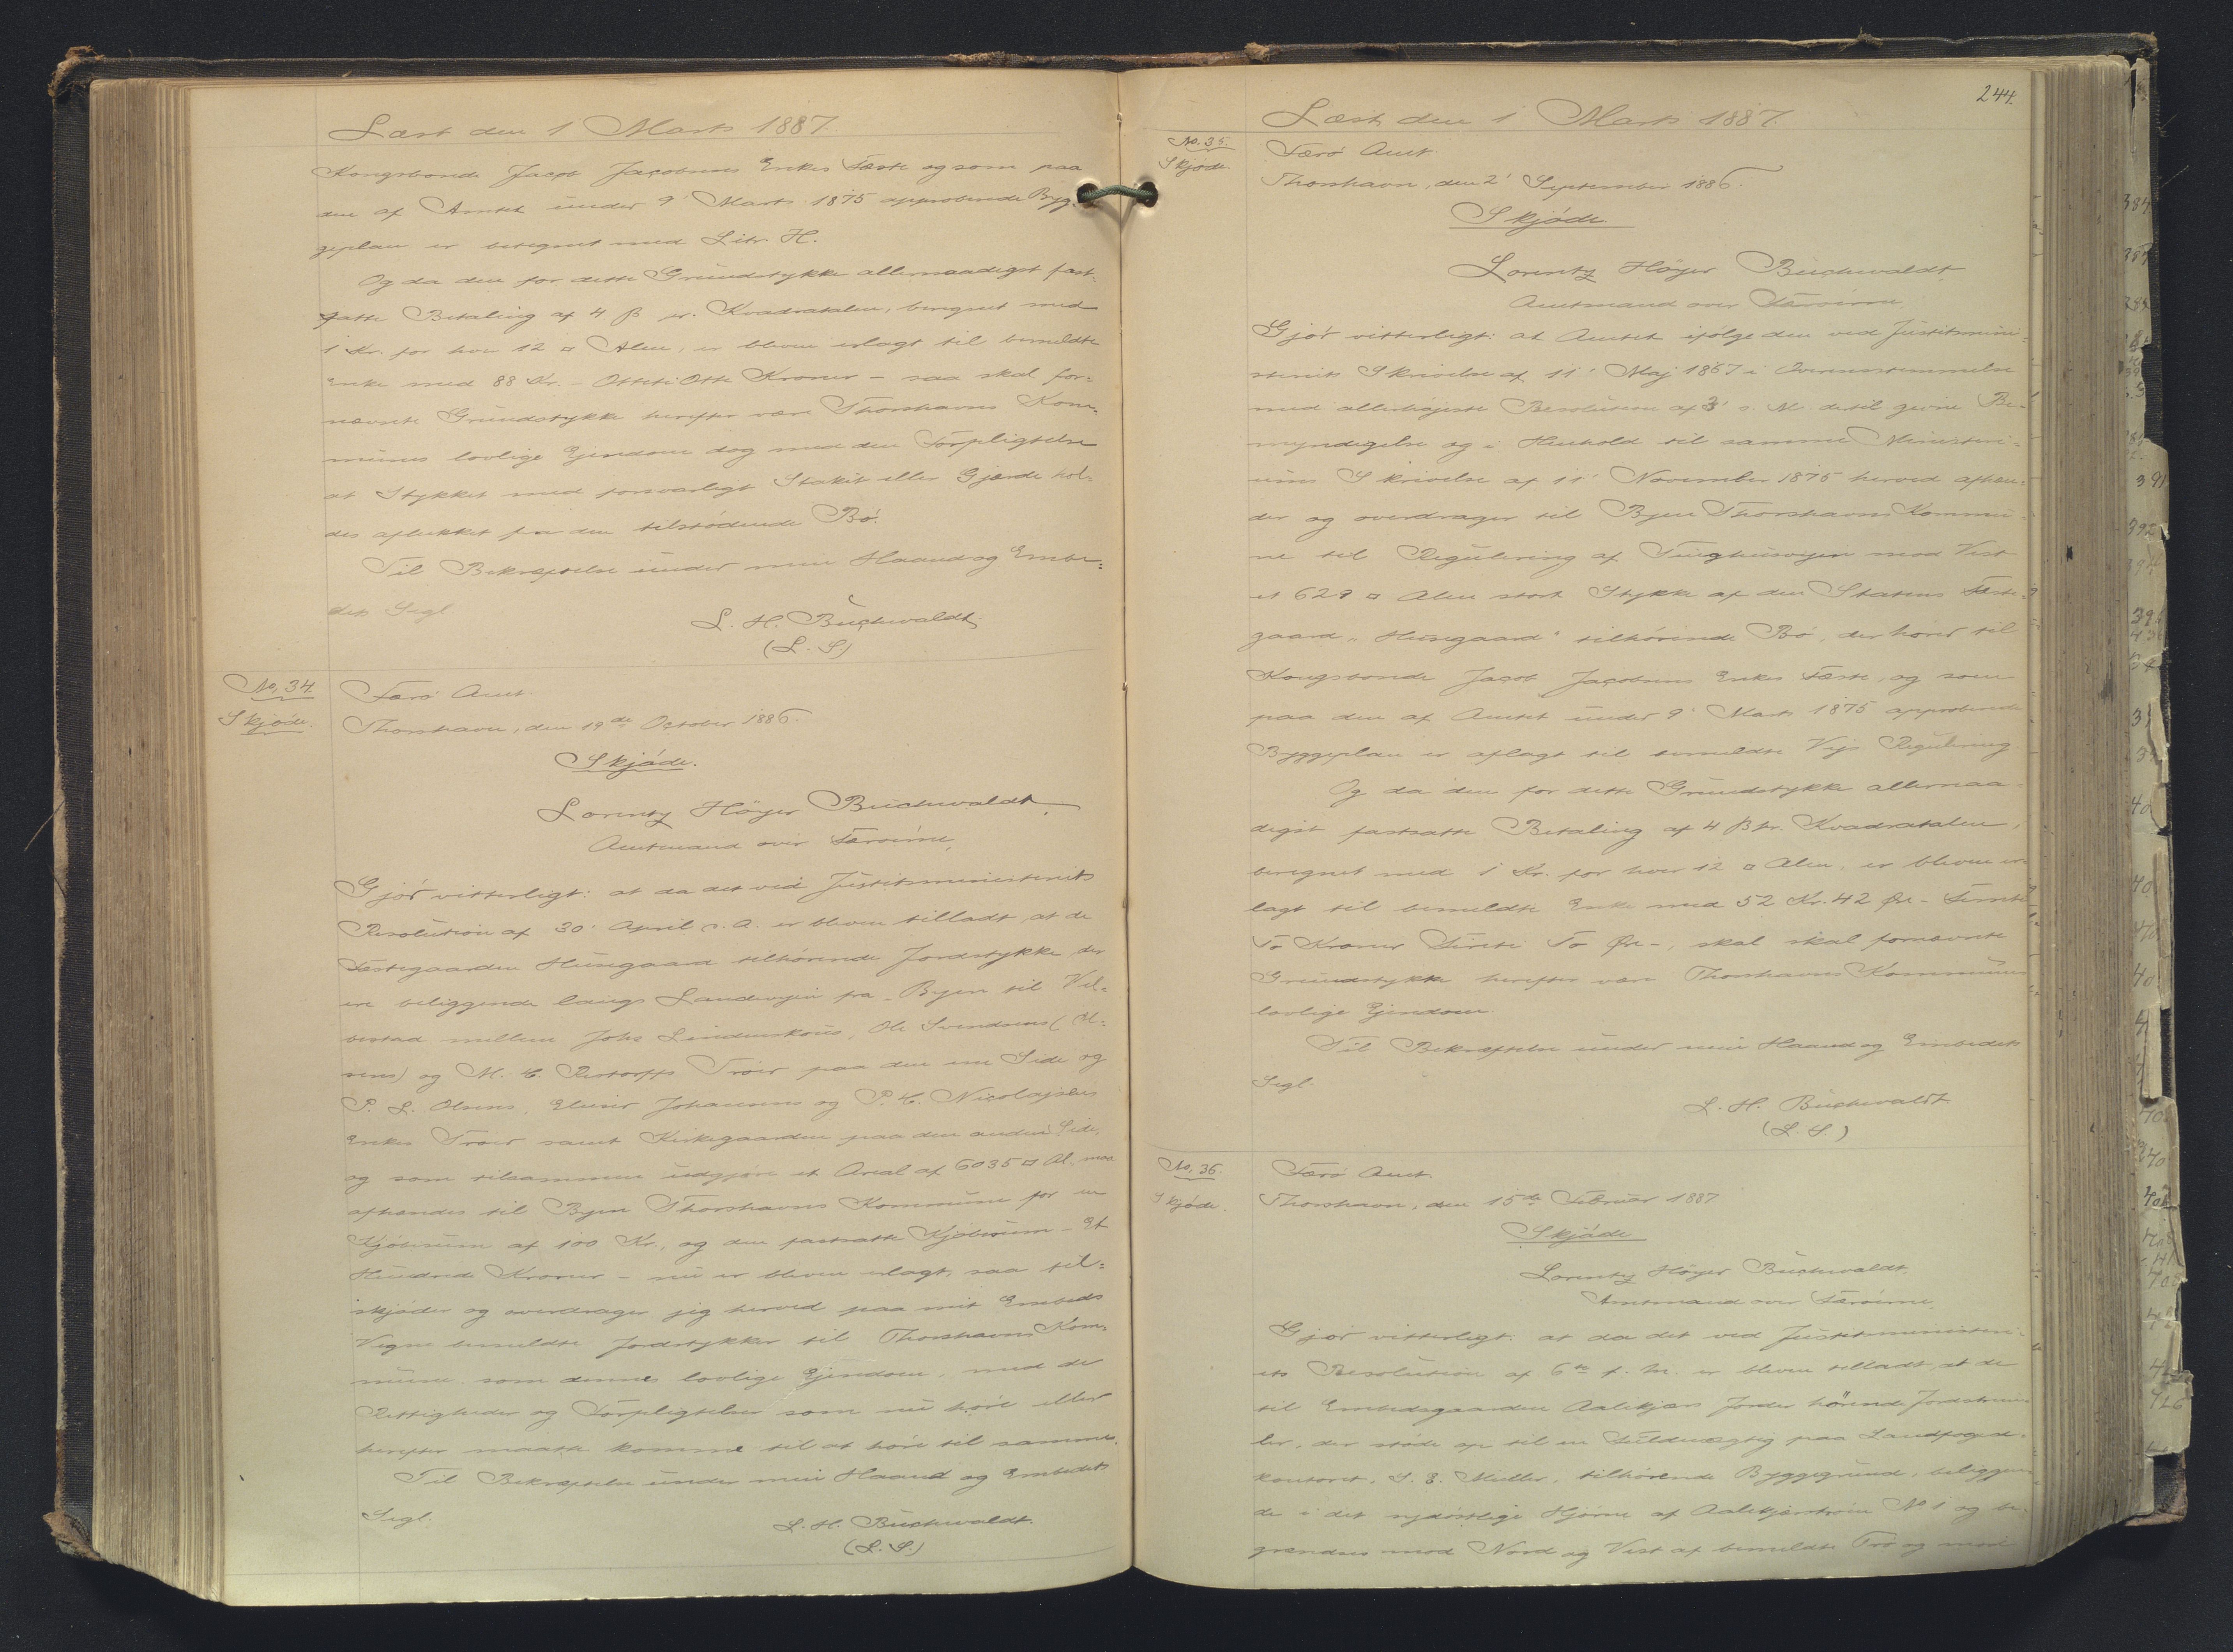 Læst den 1 Marts 1887.
Kongsbonde Jacob Jacobsens Enkes Fæste og som paa
den af Amtet under 9' Marts 1875 approberede Byg-
geplan er betegnet med Litr. H.
Og da den for dette Grundstykke allernaadigst fast-
satte Betaling af 4 β pr. Kvadratalen, beregnet med
1 Kr. for hver 12 □ Alen, er bleven erlagt til bemeldte
Enke med 88 Kr. - Otteti Otte Kroner - saa skal for-
nævnte Grundstykke herefter være Thorshavns Kom-
munes lovlige Ejendom dog med den Forpligtelse
at Stykket med forsvarligt Stakit eller Gjærde hol-
des aflukket fra den tilstødende Bø.
Til Bekræftelse under min Haand og Embe-
dets Segl
L. H. Buchwaldt
(L. S)
No. 34.
Skjøde.
Færø Amt.
Thorshavn, den 19de October 1886.
Skjøde.
Lorentz Höyer Buchwaldt,
Amtmand over Færøerne,
Gjør vitterligt: at da det ved Justitsministeriets
Resolution af 30' April d. A. er bleven tilladt, at de
Fæstegaarden Husegaard tilhørende Jordstykke der
ere beliggende langs Landevejen fra Byen til Vel-
bestad mellem Johs Lindenskous, Ole Svendsens (Ol-
sens) og M. C. Restorffs Trøer paa den ene Side og
P. L. Olsens, Elieser Johansens og P. C. Nicolajsens
Enkes Trøer samt Kirkegaarden paa den anden Side,
og som tilsammen udgjøre et Areal af 6035 □ Al. maa
afhændes til Byen Thorshavns Kommune for en
Kjøbesum af 100 Kr., og den fastsatte Kjøbesum - Et
Hundrede Kroner - nu er bleven erlagt, saa til-
skjøder og overdrager jeg herved paa mit Embeds
Vegne bemeldte Jordstykker til Thorshavns Kom-
mune som dennes lovlige Ejendom, med de
Rettigheder og Forpligtelser som nu høre eller
herefter maatte komme til at høre til samme.
Til Bekræftelse under min Haand og Embedets
Segl.
L. H. Buchwaldt.
(L. S.)
244.
Læst den 1 Marts 1887.
No. 35.
Skjøde.
Færø Amt.
Thorshavn, den 2' September 1886.
Skjøde
Lorentz Höyer Buchwaldt
Amtmand over Færøerne
Gjør vitterligt: at Amtet ifølge den ved Justitsmini-
steriets Skrivelse af 11' Maj 1867 i Overensstemmelse
med allerhøjeste Resolution af 3' s. M. dertil givne Be-
myndigelse og i Henhold til samme Ministeri-
ums Skrivelse af 11' November 1875 herved afhæn-
der og overdrager til Byen Thorshavns Kommu-
ne til Regulering af Tinghusvejen mod Vest
et 629 □ Alen stort Stykke af den Statens Fæste-
gaard "Husegaard" tilhørende Bø, der hører til
Kongsbonde Jacob Jacobsens Enkes Fæste, og som
paa den af Amtet under 9' Marts 1875 approberede
Byggeplan er aflagt til bemeldte Vejs Regulering
Og da den for dette Grundstykke allernaa-
digst fastsatte Betaling af 4 β pr. Kvadratalen,
beregnet med 1 Kr. for hver 12 □ Alen, er bleven er-
lagt til bemeldte Enke med 52 Kr. 42 Øre - Femti
To Kroner Firete To Øre -, skal skal fornævnte
Grundstykke herefter være Thorshavns Kommunes
lovlige Ejendom.
Til Bekræftelse under min Haand og Embedets
Segl.
L. H. Buchwaldt
(L. S.)
No. 36.
Skjøde.
Færø Amt.
Thorshavn, den 15de Februar 1887
Skjøde
Lorentz Höyer Buchwaldt,
Amtmand over Færøerne,
Gjør vitterligt: at da det ved Justitsministeri-
ets Resolution af 6te f. M. er bleven tilladt, at de
til Embedsgaarden Aalekjærs Jorder hörende Jordstrim-
ler, der støde op til en Fuldmægtig paa Landfoged-
kontoret, S. E. Müller, tilhørende Byggegrund, beliggen-
de i det sydøstlige Hjørne af Aalekjærstrøen No 1 og be-
grændses mod Nord og Vest af bemeldte Trø og mod